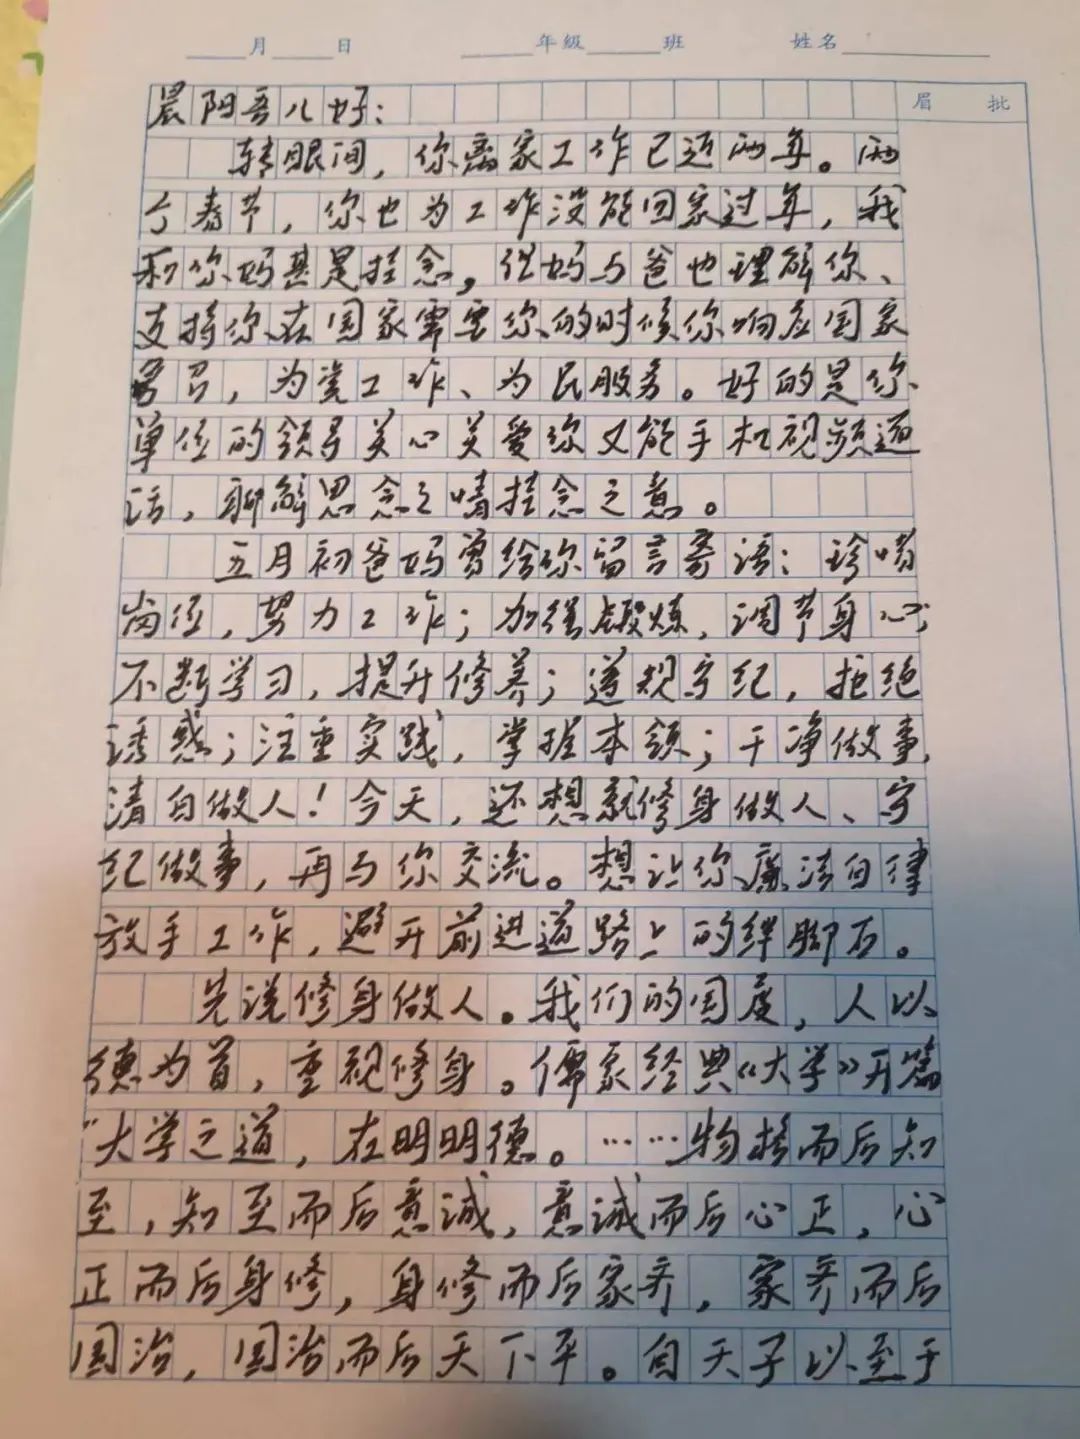 月 日 年级 班 姓名
眉 批
晨阳吾儿好:
转眼间,你离家工作已近两年。两
个春节,你也为工作没能回家过年,我
和你妈甚是挂念,但妈与爸也理解你、
支持你在国家需要你的时候你响应国家
号召,为党工作、为民服务。好的是你
单位的领导关心关爱你又能手机视频通
话,聊解思念之情挂念之意。
五月初爸妈曾给你留言寄语:珍惜
岗位,努力工作;加强锻炼,调节身心;
不断学习,提升修养;遵规守纪,拒绝
诱惑;注重实践,掌握本领;干净做事,
清白做人!今天,还想就修身做人、守
纪做事,再与你交流。想让你廉洁自律
放手工作,避开前进道路上的绊脚石。
先说修身做人。我们的国度,人以
德为首,重视修身。儒家经典《大学》开篇
“大学之道,在明明德。……物格而后知
至,知至而后意诚,意诚而后心正,心
正而后身修,身修而后家齐,家齐而后
国治,国治而后天下平。自天子以至于